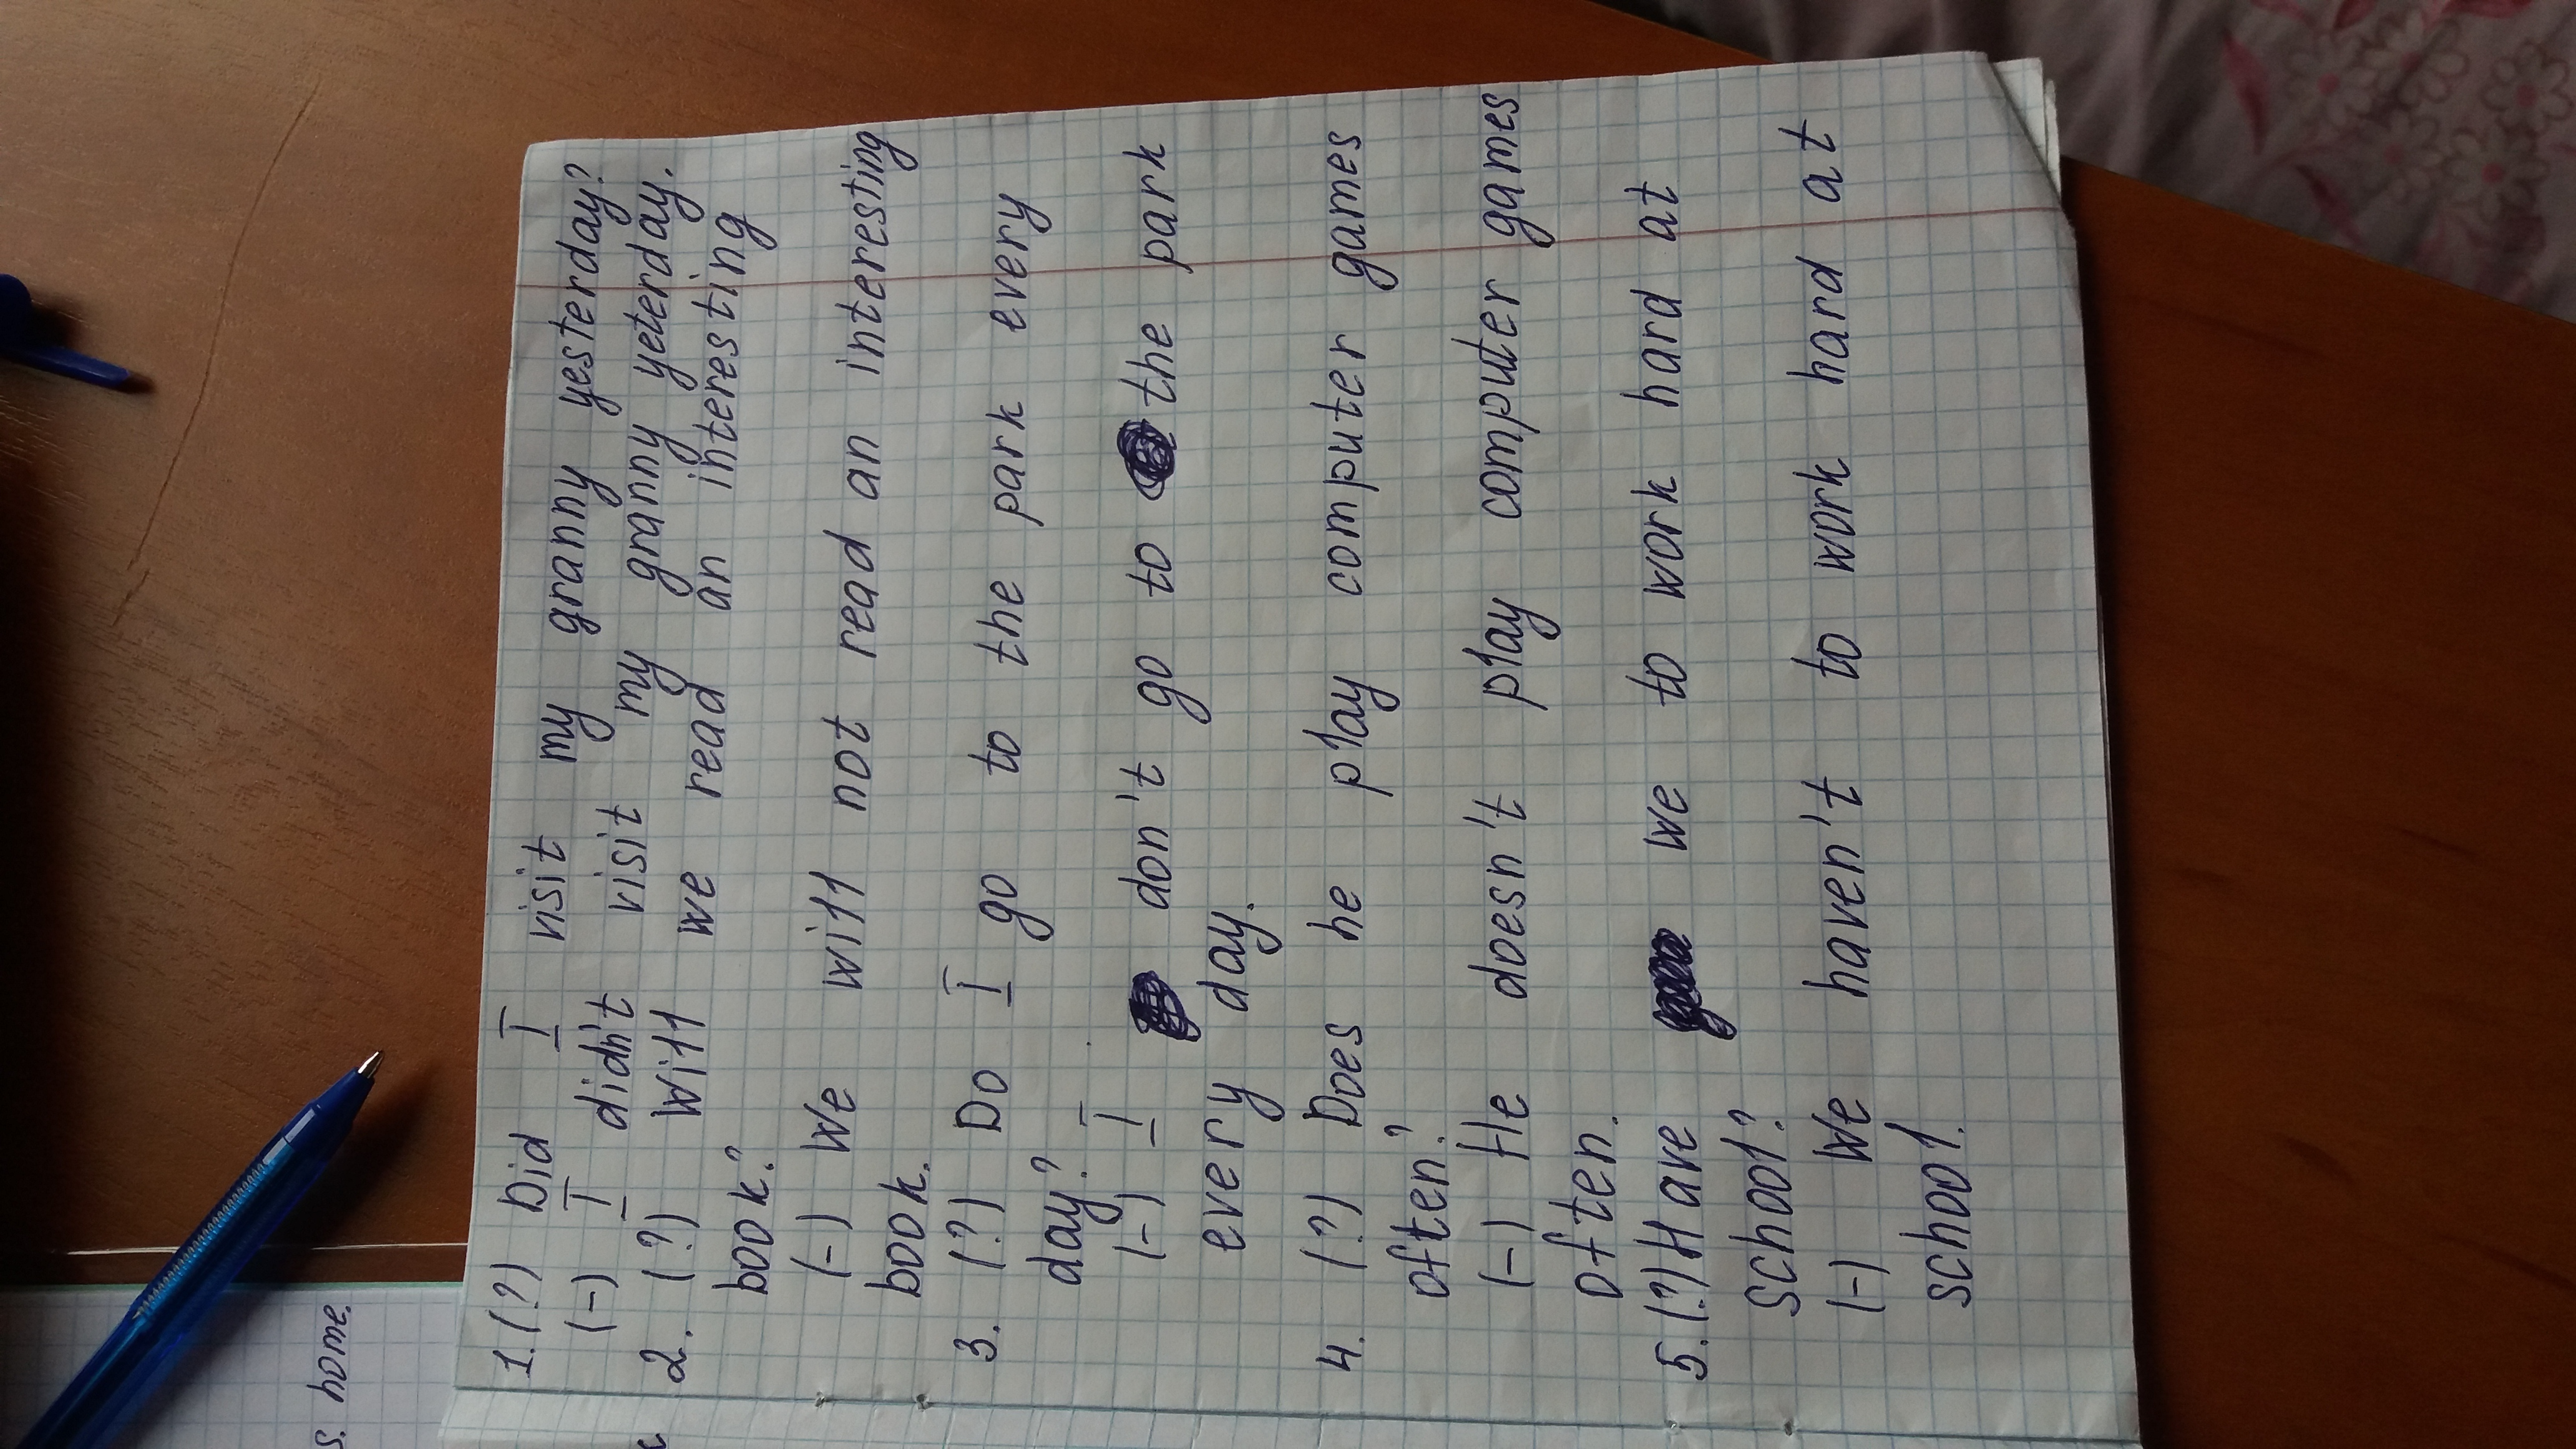 1. (?) Did I visit my granny yesterday?
(-) I didn't visit my granny yeterday.
2. (?) Will we read an interesting
book?
(-) We will not read an interesting
book.
3. (?) Do I go to the park every
day?
(-) I don't go to the park
every day.
4. (?) Does he play computer games
often?
(-) He doesn't play computer games
often.
5. (?) Have we to work hard at
school?
(-) We haven't to work hard at
school.
s. home.